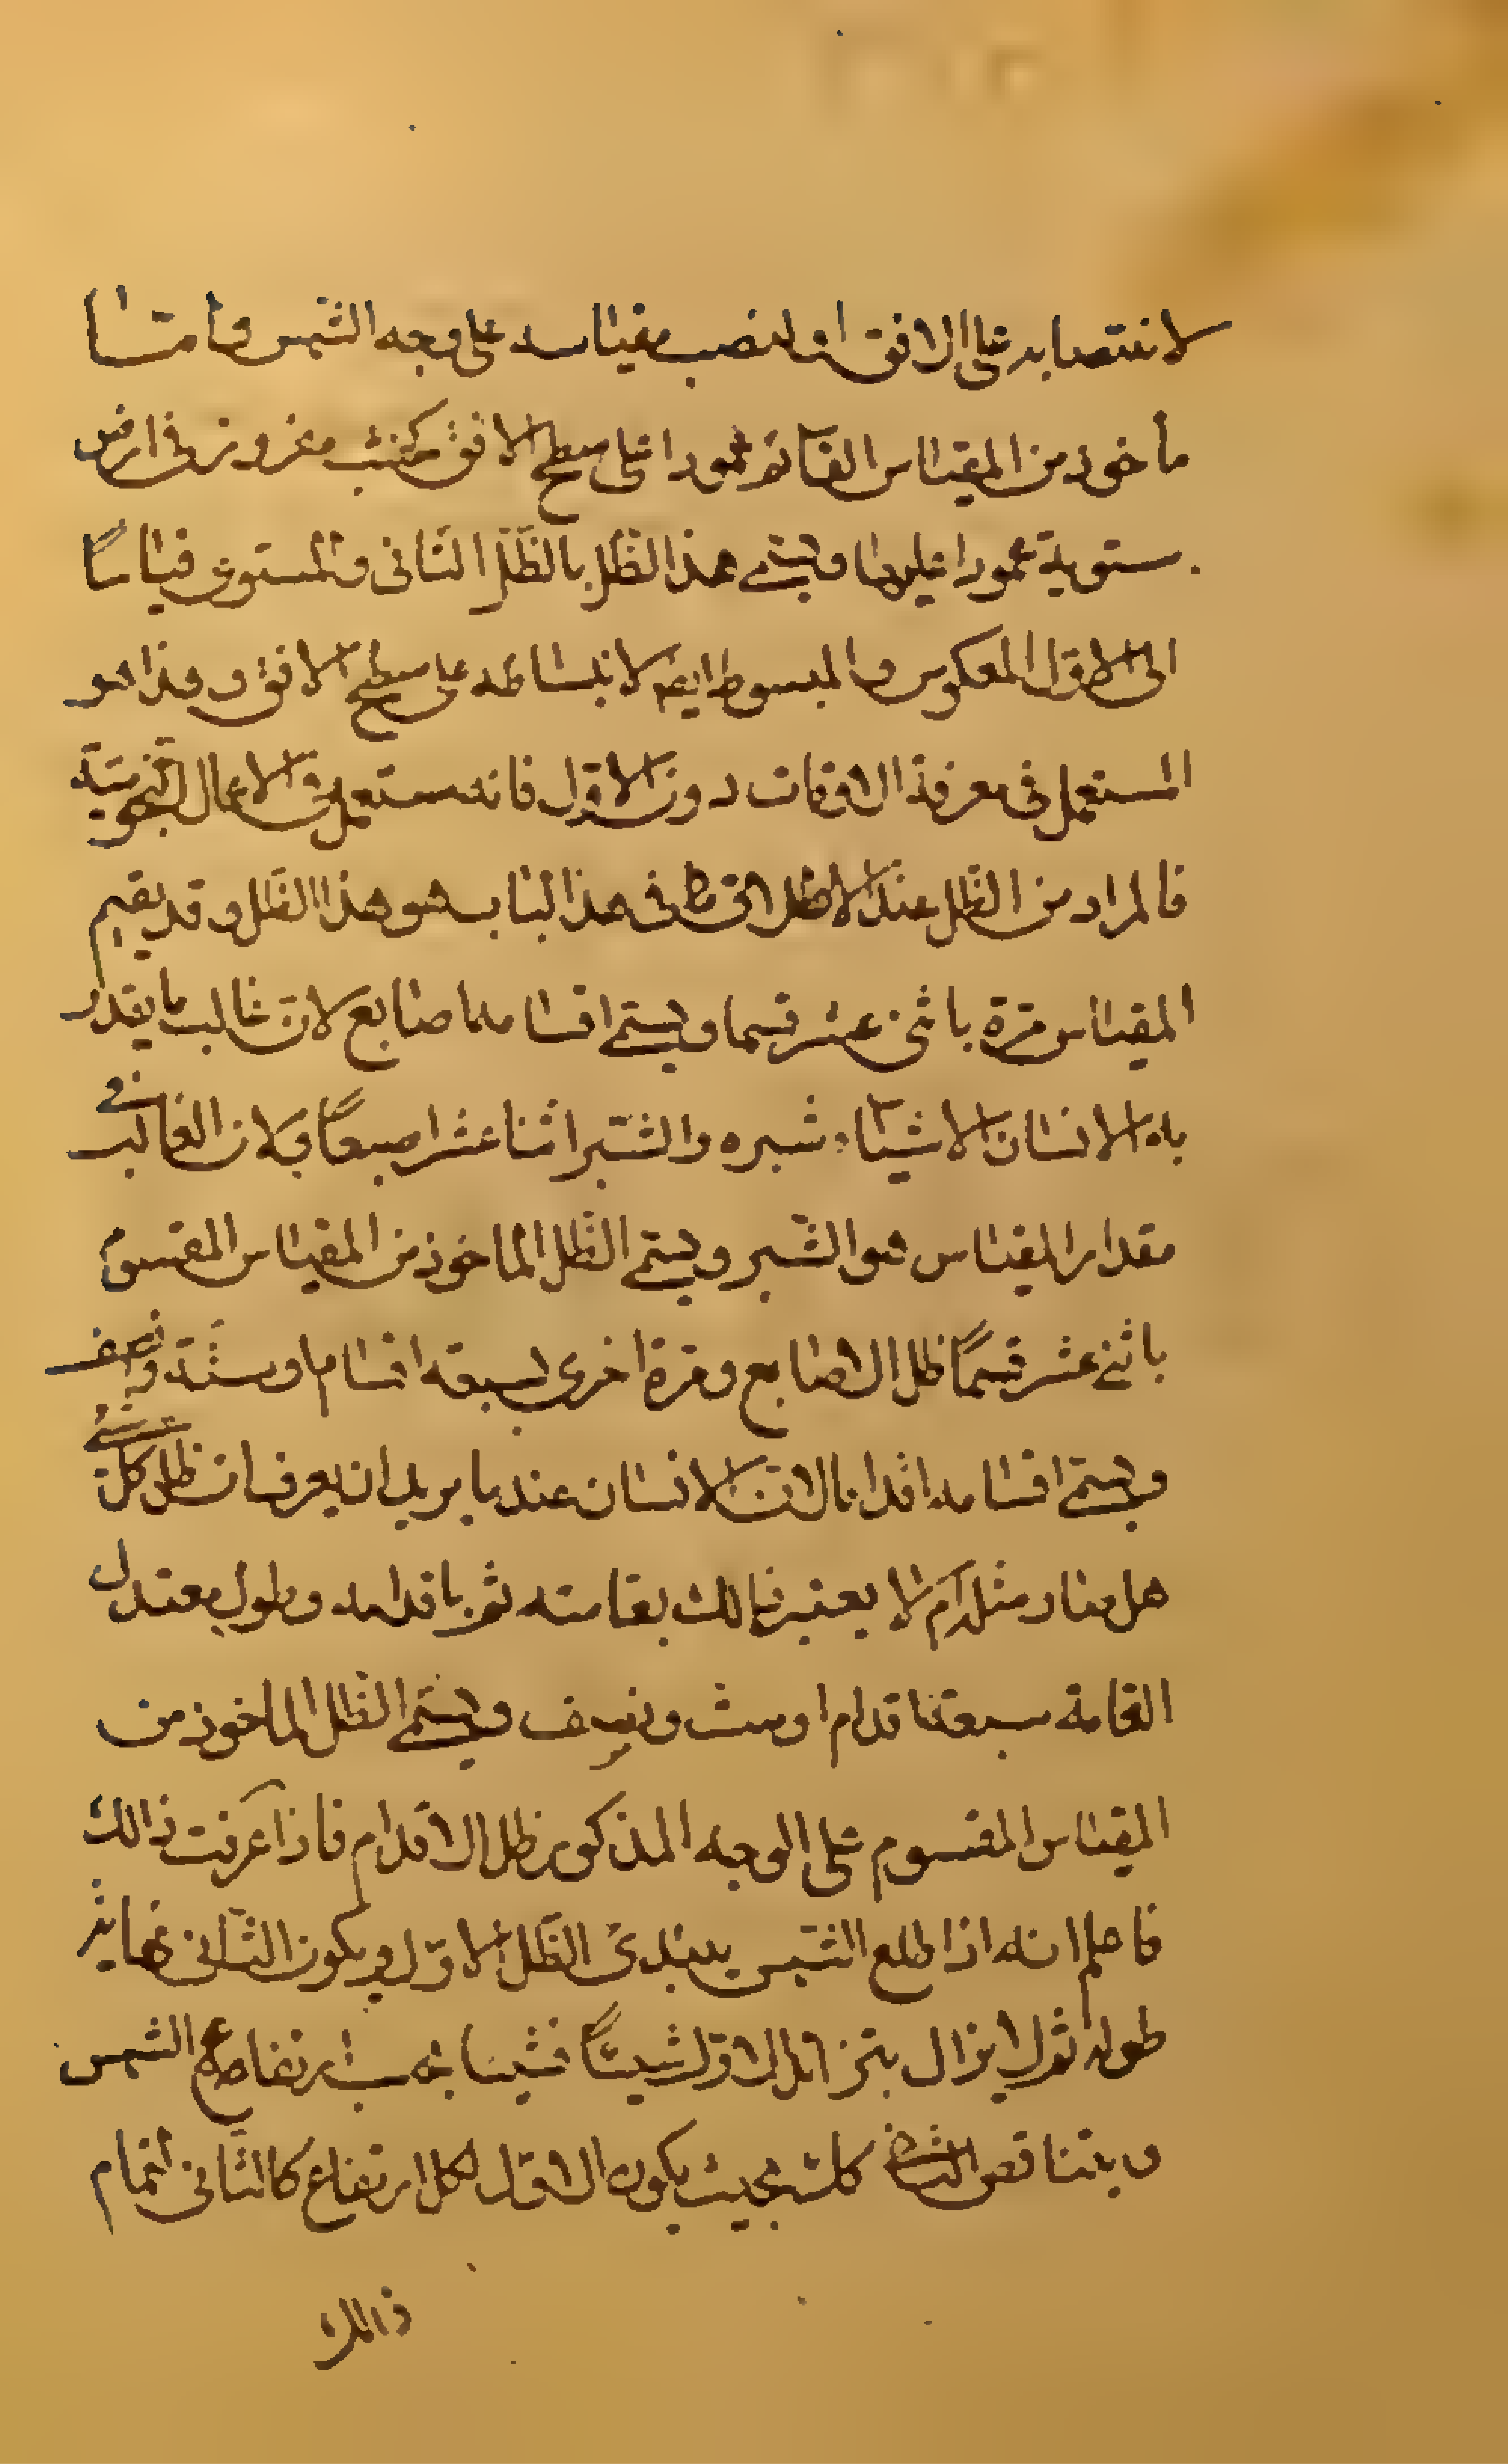 لانتصابه على الافق او لنصب مقياسه على وجه الشمس واما
مأخوذ من المقياس القائم عمودا على سطح الافق كخشب مغروز في ارض
مستوية عمودا عليها ويسمى هذا الظل بالظل الثاني والمستوى قياسا
الى الاول المعكوس والمبسوط ايضا لانبساطه على سطح الافق وهذا هو
المستعمل في معرفة الاوقات دون الاول فانه مستعمل في الاعمال النجومية
فالمراد من الظل عند الاطلاق في هذا الباب هو هذا الظل وقد يقسم
المقياس مرة باثنى عشر قسما ويسمى اقسامه اصابع لان غالب ما يقدر
به الانسان الاشياء شبره والشبر اثنا عشر اصبعا ولان الغالب في
مقدار المقياس هو الشبر ويسمى الظل الماخوذ من المقياس المقسوم
باثنى عشر قسما ظل الاصابع ومرة اخرى بسبعة اقسام او ستة ونصف
ويسمى اقسامه اقداما لان الانسان عند ما يريد ان يعرف ان ظل كل شئ
هل صار مثله ام لا يعتبر ذالك بقامته ثم باقدامه وطول معتدل
القامة سبعة اقدام او ست ونصف ويسمى الظل الماخوذ من
المقياس المقسوم على الوجه المذكور ظل الاقدام فاذا عرفت ذالك
فاعلم انه اذا طلع الشمس يبتدئ الظل الاول ويكون الثاني غاية
طوله ثم لا يزال يتزايد الاول شيئا فشيئا بحسب ارتفاع الشمس
ويتناقص الثاني كذلك بحيث يكون الاول لكل ارتفاع كالثاني لتمام
ذالك